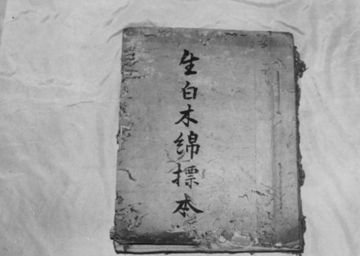 生白木綿標本